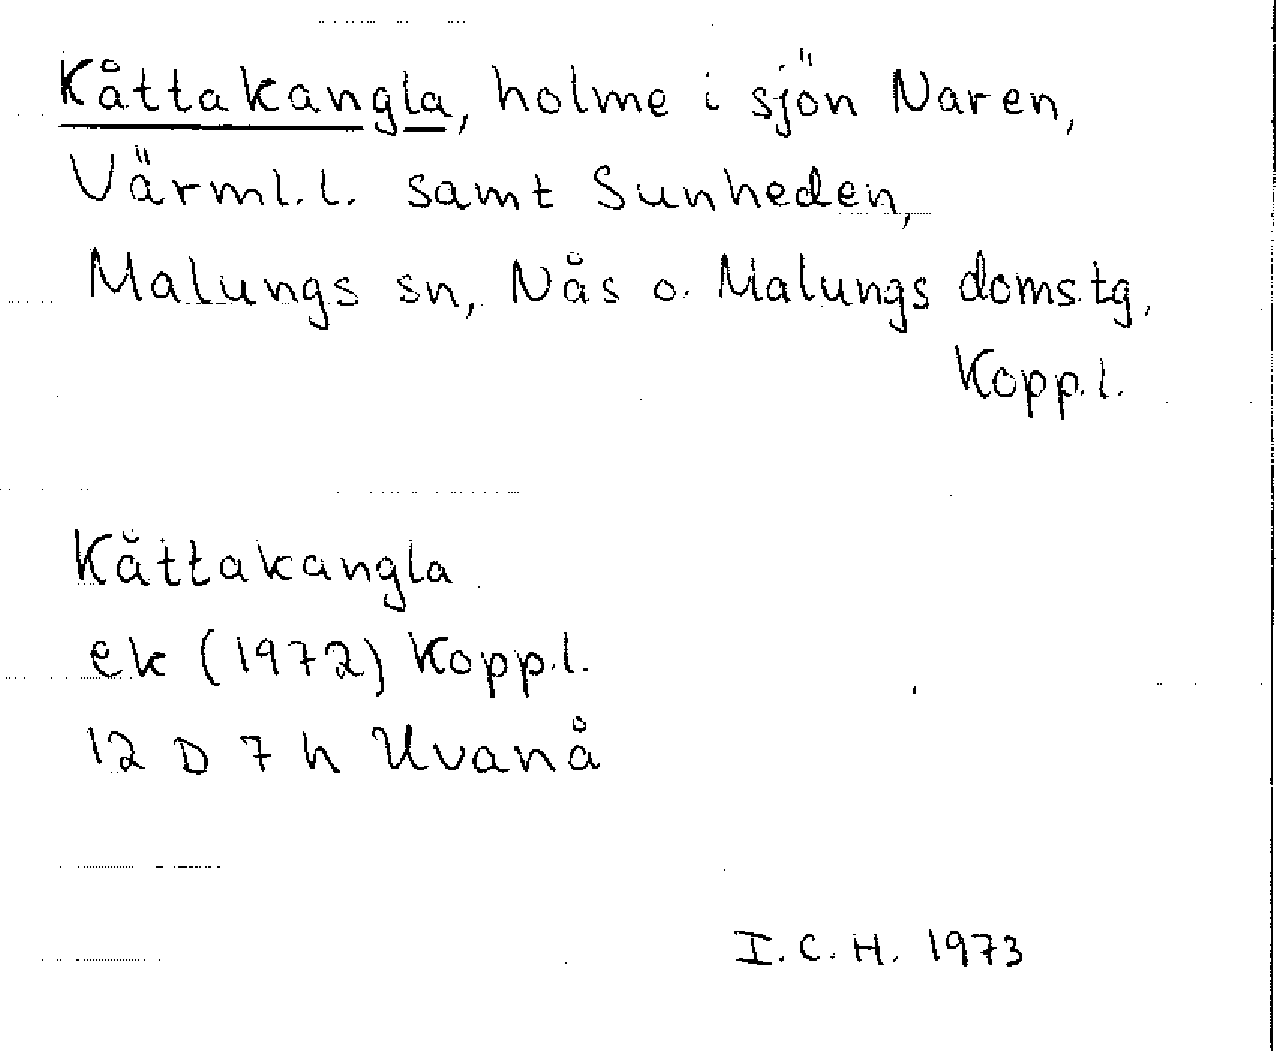 Kåttakangla, holme i sjön Naren,
Värml.l. samt Sunheden,
Malungs sn, Nås o. Malungs domstg,
Kopp.l.
Kåttakangla
ek (1972) Kopp.l.
12 D 7 h Uvanå
I.C.H. 1973